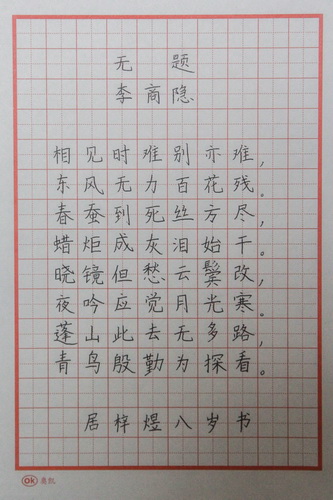 无 题
李商隐
相见时难别亦难,
东风无力百花残。
春蚕到死丝方尽,
蜡炬成灰泪始干。
晓镜但愁云鬓改,
夜吟应觉月光寒。
蓬山此去无多路,
青鸟殷勤为探看。
居梓煜八岁书
ok 惠凯